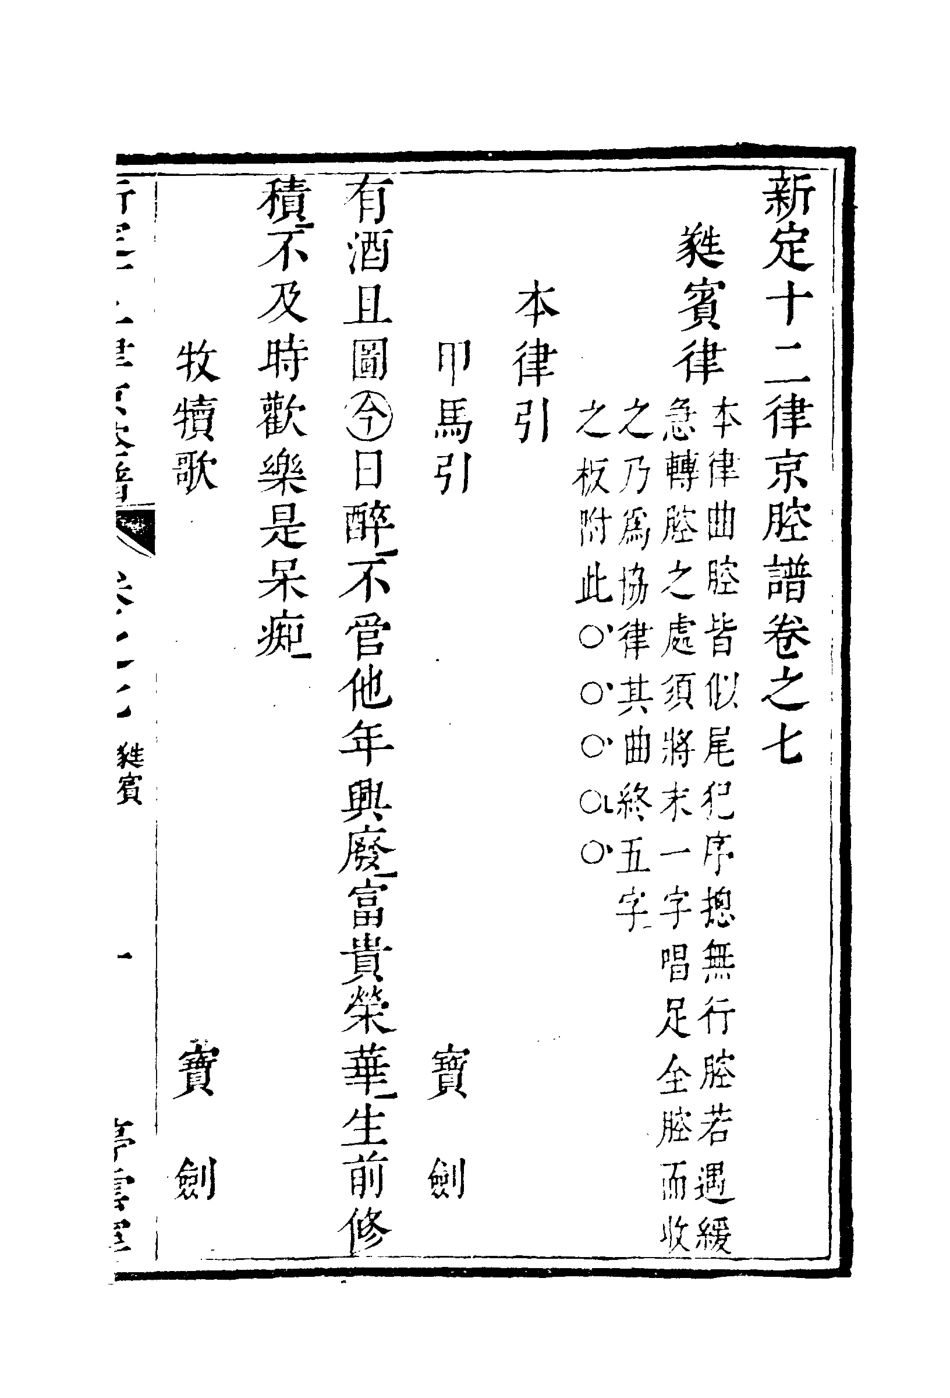 新定十二律京腔譜卷之七
蕤賓律
本律曲腔皆似尾犯序摠無行腔若遇緩
急轉腔之處須將末一字唱足全腔而收
之乃爲協律其曲終五字
之板附此○、○、○、○乚○、
本律引
卬馬引 寶劍
有酒且圖今日醉不管他年興廢富貴榮華生前修
積不及時歡樂是呆痴
牧犢歌 寶劍
新定十二律京腔譜 卷之七 蕤賓 一 停雲室